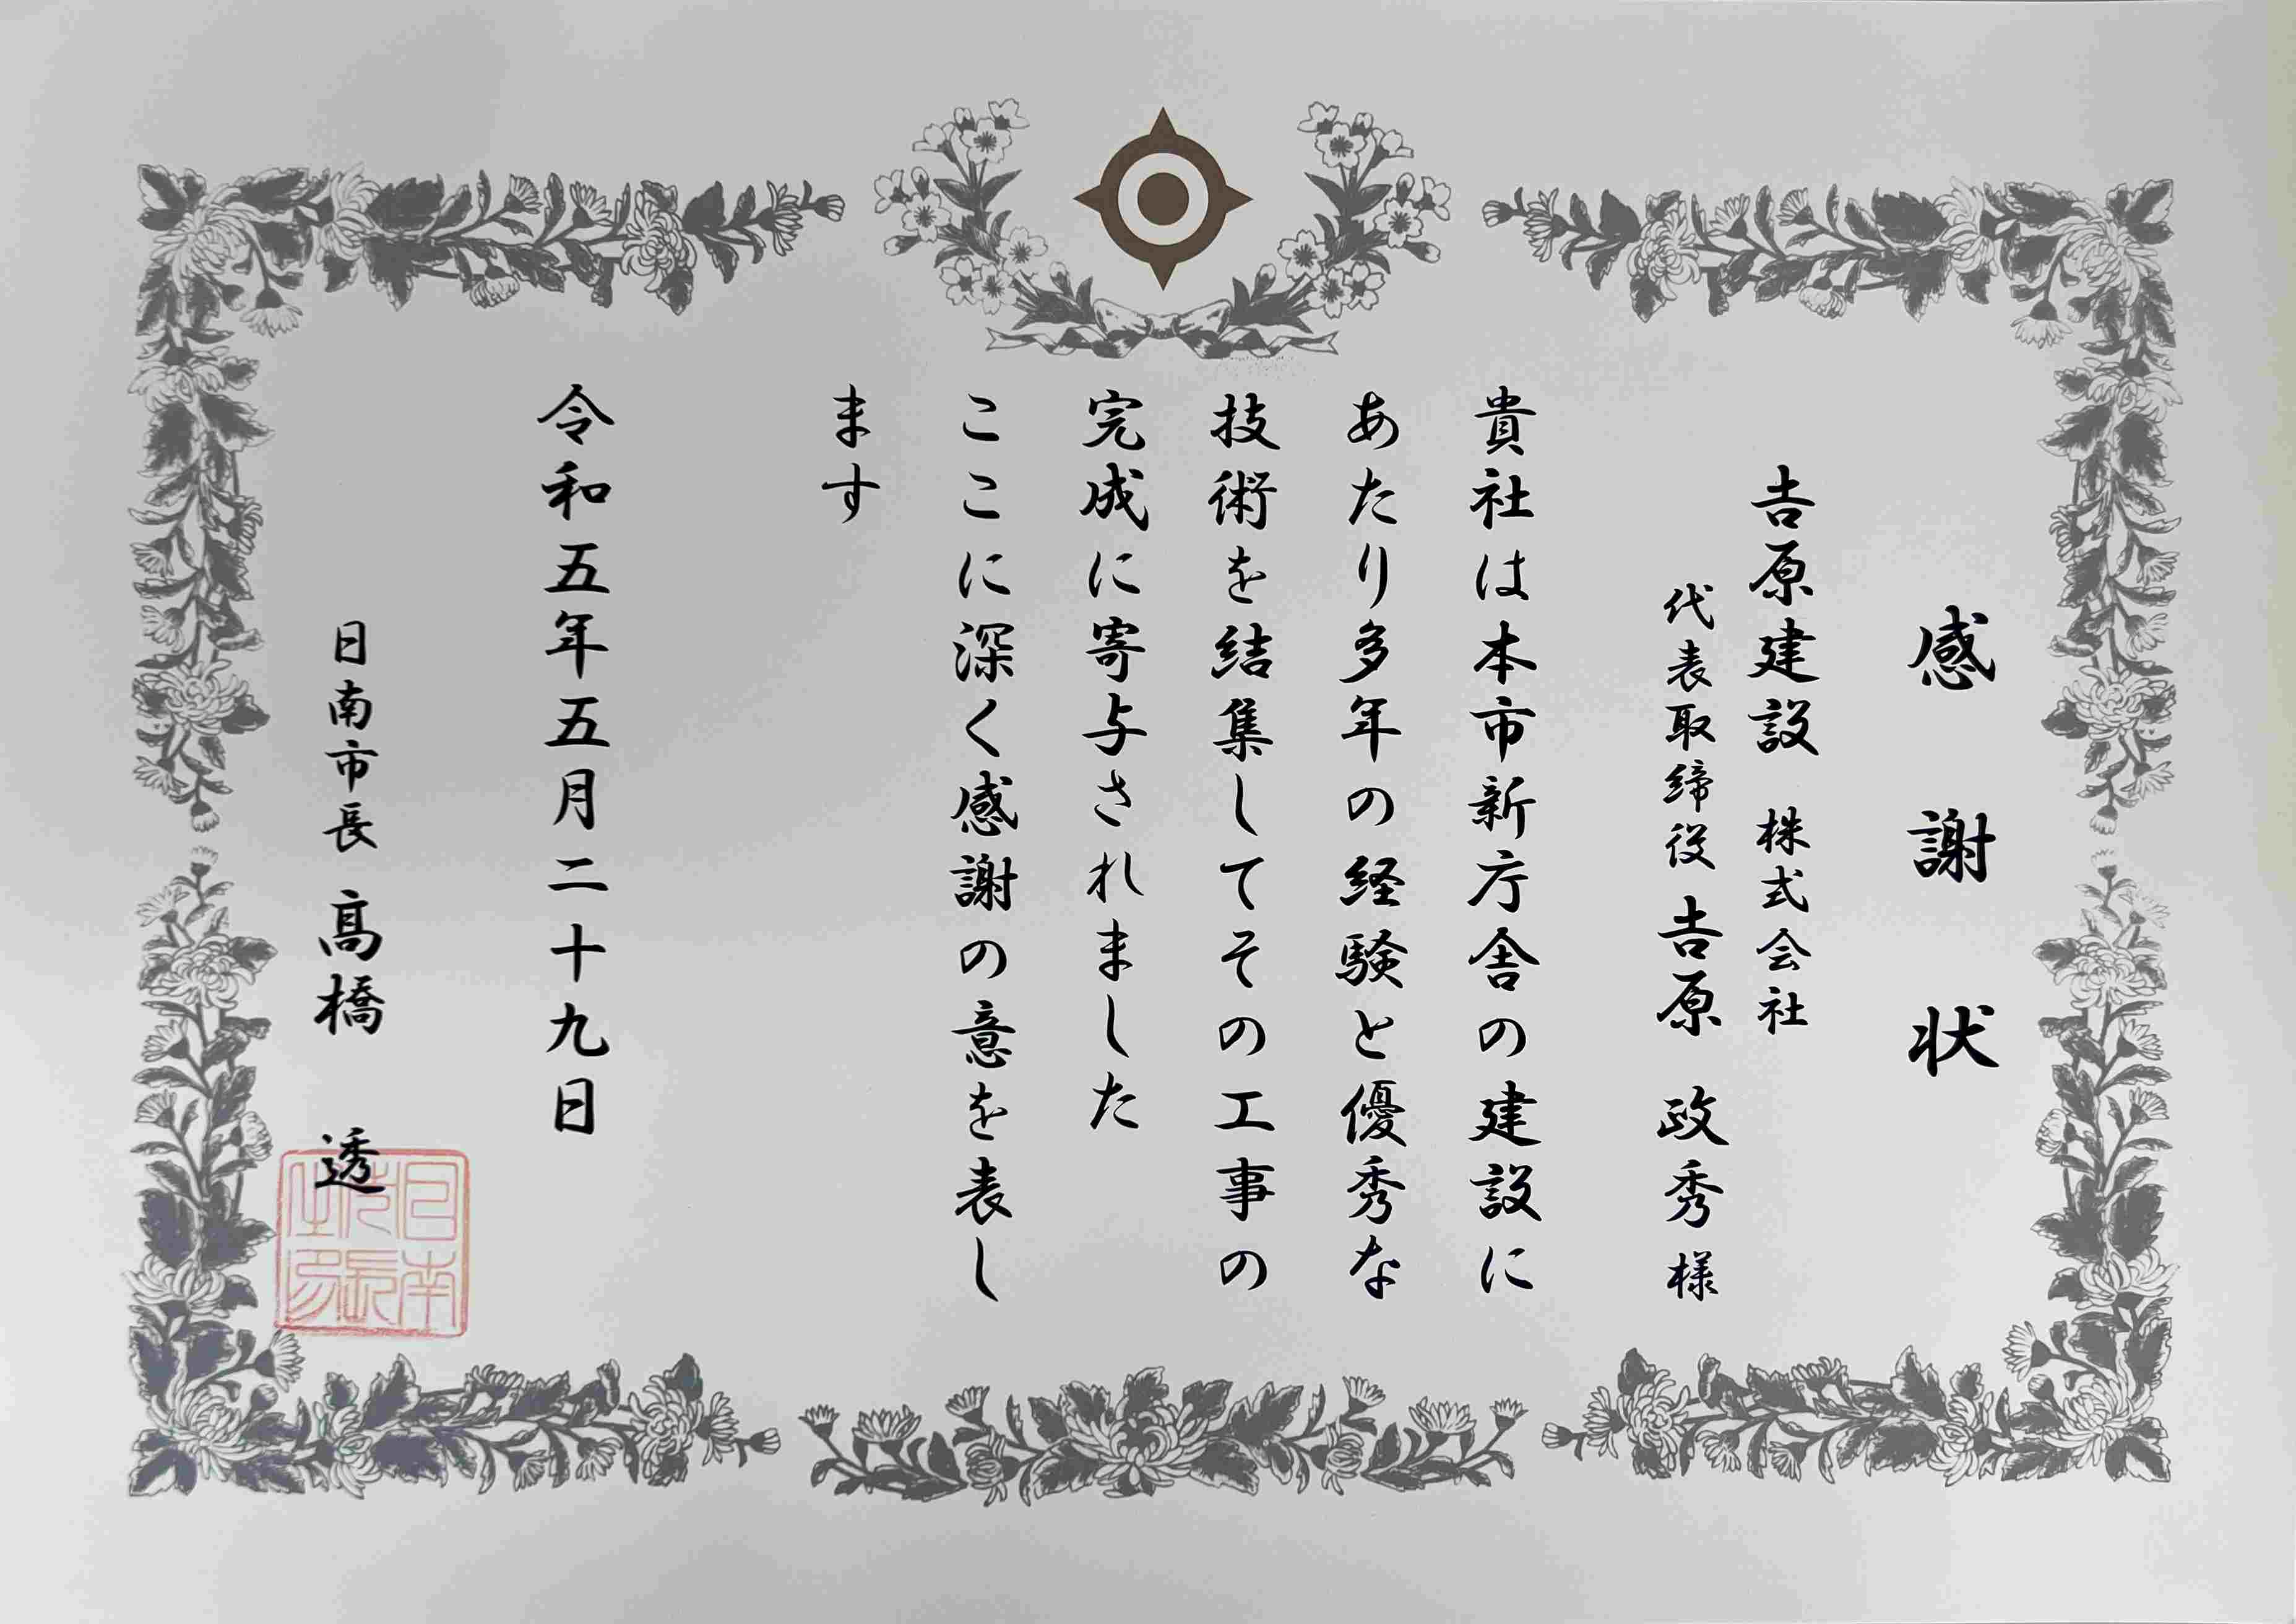 感謝状
𠮷原建設　株式会社
代表取締役　𠮷原　政秀　様
貴社は本市新庁舎の建設に
あたり多年の経験と優秀な
技術を結集してその工事の
完成に寄与されました
ここに深く感謝の意を表し
ます
令和五年五月二十九日
日南市長　髙橋　透
日南
市長
之印